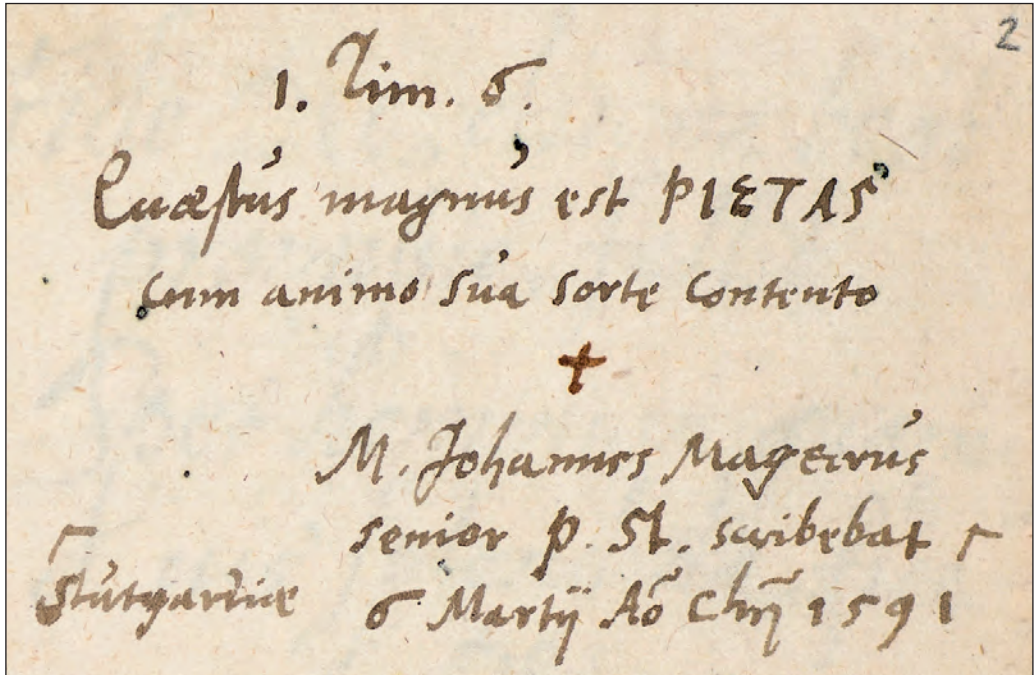 2
1. Tim. 6.
Quæstus magnus est PIETAS
cum animo sua sorte contento
M. Johannes Magirus
senior p. St. scribebat
Stutgardiæ 6 Martij Aō Chrī 1591